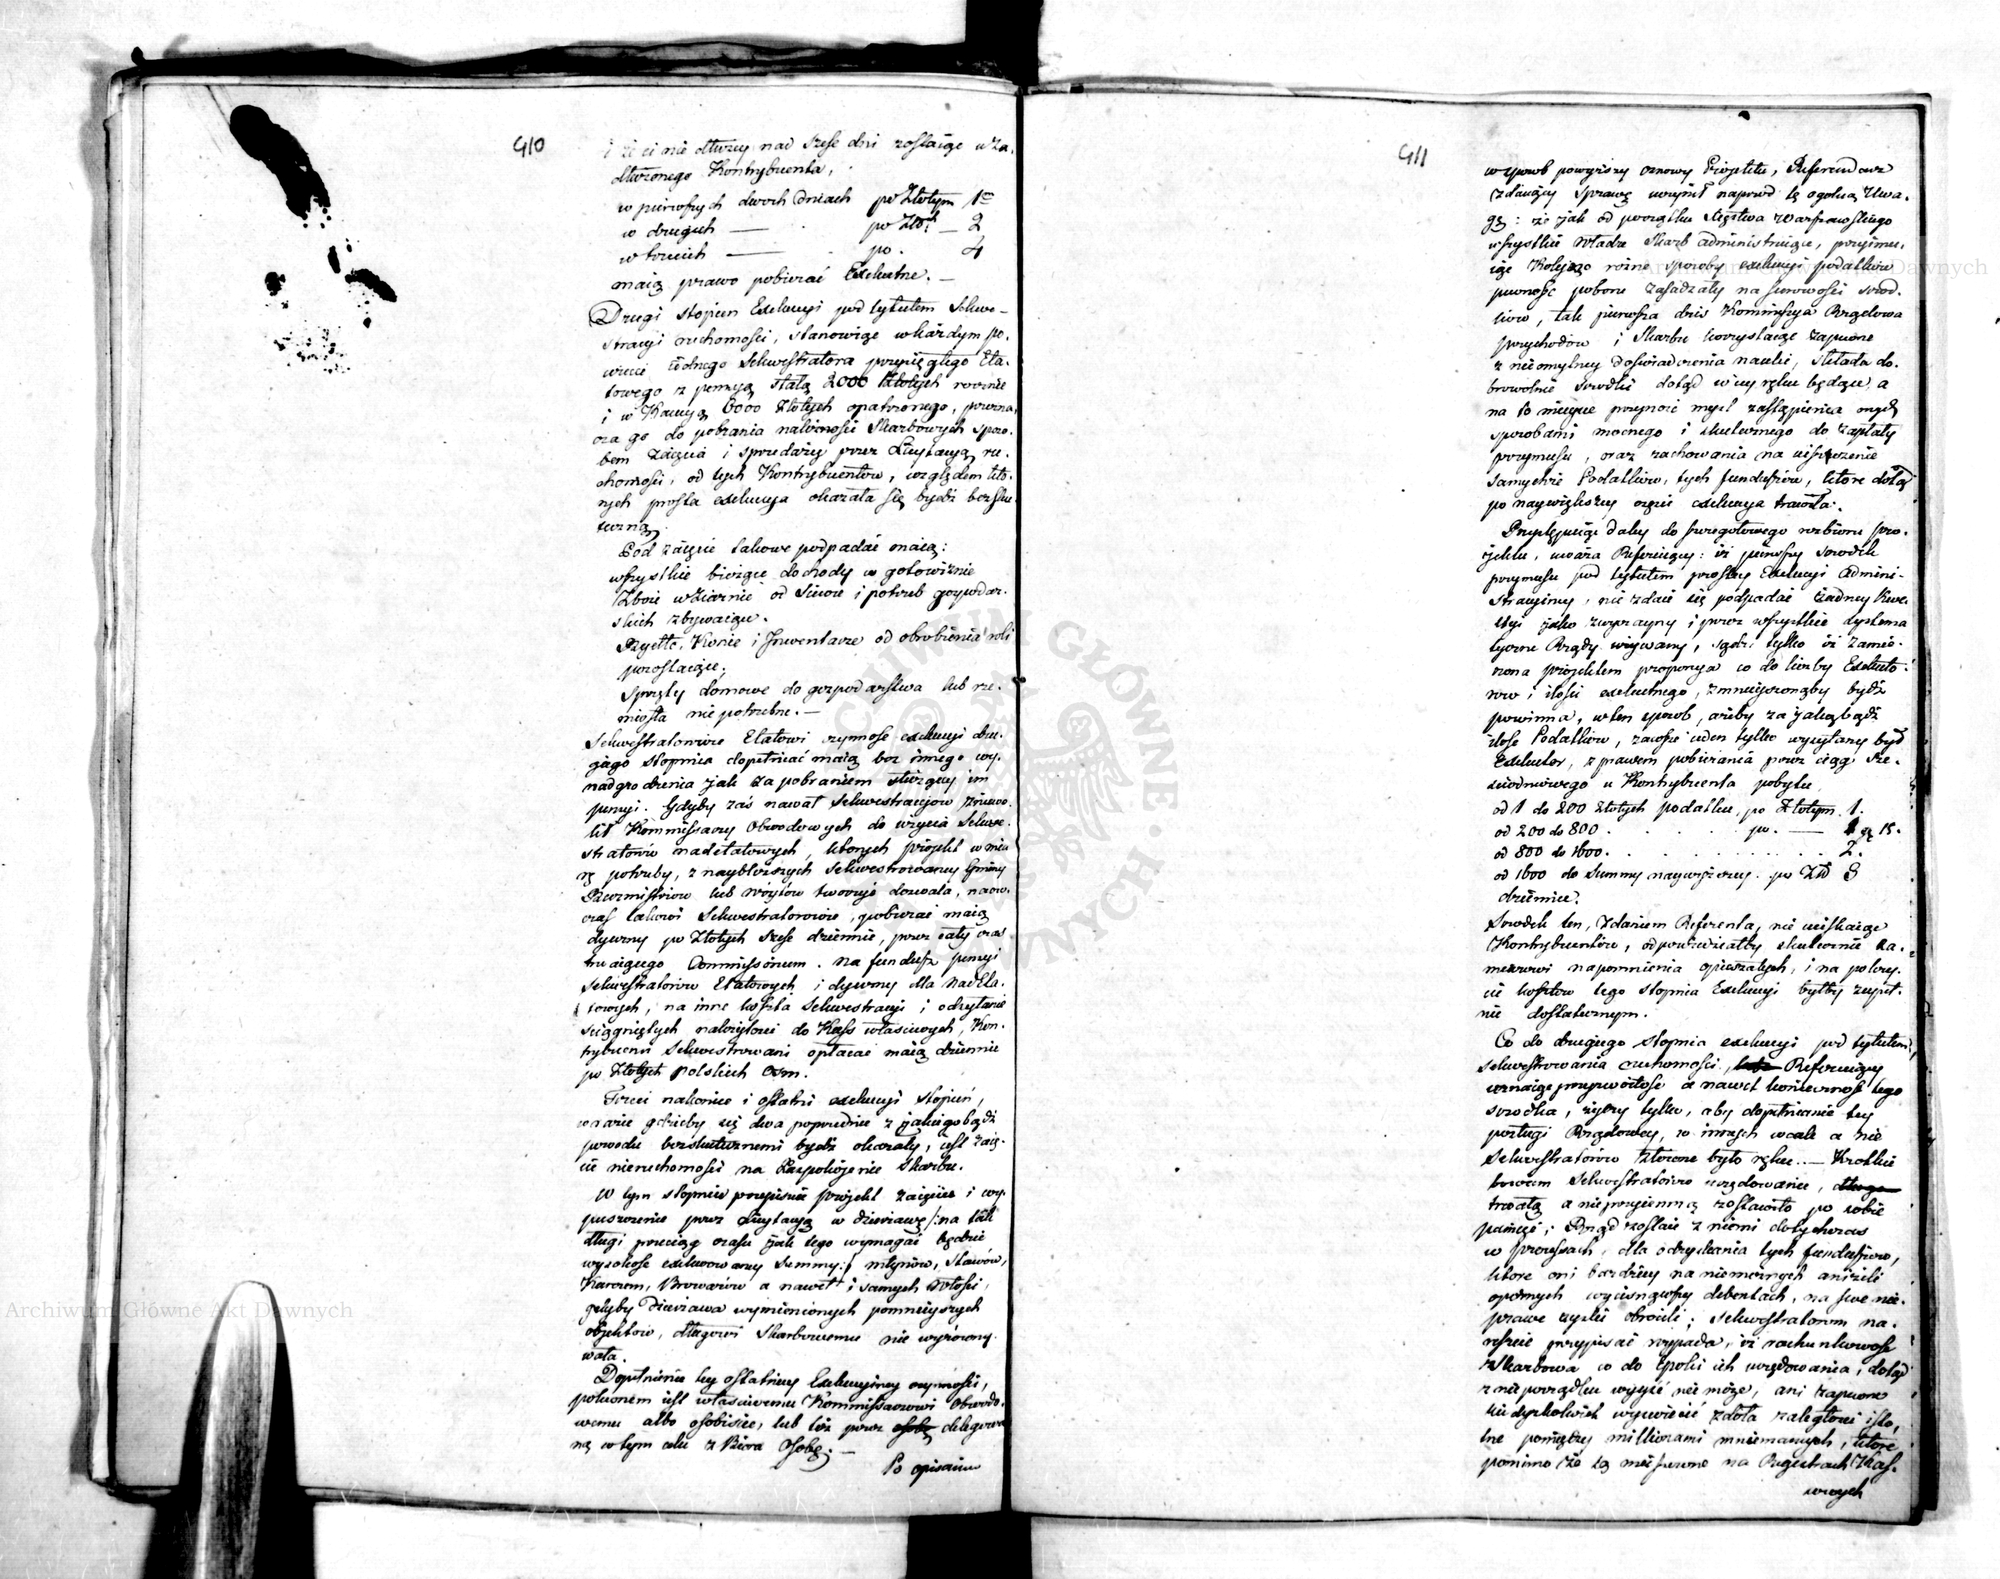 410
i że ci nie dłużey nad sześć dni zostaiąc u za-
dłużonego Kontrybuenta,
w pierwszych dwoch dniach po Złotym 1m
w drugich — po Złot. — 2
w trzecich — po . 4
maią prawo pobierać Exekutne. —
Drugi stopień Exekucyi pod tytułem Sekwe-
stracyi ruchomości, stanowiąc w każdym po-
wiecie iednego Sekwestratora przysięgłego Eta-
towego z pensyą stałą 2000 Złotych rocznie
i w Kaucyą 6000 Złotych opatrzonego, przezna-
cza go do pobrania należności Skarbowych sposo-
bem zaięcia i sprzedaży przez Licytacyą ru-
chomości, od tych Kontrybuentów, względem któ-
rych prosta exekucya okazała się bydź bezsku-
teczną.
Pod zaięcie takowe podpadać maią:
wszystkie bieżące dochody w gotowiznie
Zboże w Ziarnie od Siewu i potrzeb gospodar-
skich zbywaiące.
Bydło, Konie i Inwentarze od obrobienia roli
pozostaiące;
Sprzęty domowe do gospodarstwa lub rze-
miosła nie potrzebne. —
Sekwestratorowie Etatowi czynność exekucyi dru-
giego stopnia dopełniać maią bez innego wy-
nadgrodzenia jak za pobraniem służącey im
pensyi. Gdyby zaś nawał Sekwestracyow zniewo-
lił Kommissarzy Obwodowych do użycia Sekwe-
stratorów nadetatowych, których projekt w mia-
rę potrzeby, z naybliższych Sekwestrowaney Gminy
Burmistrzów lub Wóytów tworzyć dozwala, naów-
czas takowi Sekwestratorowie, pobierać maią
dyurny po Złotych sześć dziennie, przez cały czas
trwaiącego Commissorium. Na fundusz pensyi
Sekwestratorów Etatowych i dyurny dla nadeta-
towych, na inne koszta Sekwestracyi i odsyłanie
ściągniętych należytości do Kass właściwych, Kon-
trybuenci Sekwestrowani opłacać maią dziennie
po Złotych polskich ośm.
Trzeci nakoniec i ostatni exekucyi stopień,
w razie gdzieby się dwa poprzednie z jakiegobądź
powodu bezskutecznemi bydź okazały, iest zaię-
cie nieruchomości na Zaspokojenie Skarbu.
W tym stopniu przepisuie projekt zaięcie i wy-
puszczenie przez Licytacyą w dzierżawę /: na tak
długi przeciąg czasu jak tego wymagać będzie
wysokość exekwowaney Summy :/ młynów, stawów,
Karczm, Browarów a nawet i samych Włości,
gdyby Dzierżawa wymienionych pomnieyszych
objektów, długowi Skarbowemu nie wyrówny-
wała.
Dopełnienie tey ostatniey Exekucyiney czynności,
polecone iest właściwemu Kommissarzowi Obwodo-
wemu albo osobiście, lub też przez osobę delegowa-
ną w tym celu z Biura Osobę. —
Po opisaniu
411
w sposob powyższy osnowy Projektu, Referendarz
zdaiący sprawę uczynił naprzód tę ogólną Uwa-
gę: że jak od początku Xięstwa Warszawskiego
wszystkie Władze Skarb administruiące, przyimu-
iąc Koleyno różne sposoby exekucyi podatków
pewność poboru zasadzały na surowości środ-
ków, tak pierwsza dziś Kommissya Rządowa
przychodów i Skarbu korzystaiąc zapewne
z nieomylney doświadczenia nauki, składa do-
browolnie środki dotąd w iey ręku będące, a
na to mieysce przynosi myśl zastąpienia onych
sposobami mocnego i skutecznego do zapłaty
przymusu, oraz zachowania na uiszczenie
samychże Podatków, tych funduszów, które dotąd
po naywiększey części exekucya trawiła.
Przystępuiąc daley do szczegółowego rozbioru pro-
jektu, uważa Referuiący: iż pierwszy środek
przymusu pod tytułem prostey Exekucyi Admini-
stracyiney, nie zdaie się podpadać żadney Kwe-
styi jako zwyczayny i przez wszystkie systema-
tyczne Rządy używany, sądzi tylko iż zamie-
rzona projektem proporcya co do liczby Exekuto-
rów i ilości exekutnego, zmnieyszonąby bydź
powinna, w ten sposób, ażeby za jakąbądź
ilość Podatków, zawsze ieden tylko wysyłany był
Exekutor, z prawem pobierania przez ciąg sze-
ściodniowego u Kontrybuenta pobytu
od 1 do 200 Złotych podatku, po Złotym . 1.
od 200 do 800 . . . . po. — 1 gę 15.
od 800 do 1600. . . . . . . . 2.
od 1600 do Summy naywyższey. po Złł 3
dziennie.
Środek ten, Zdaniem Referenta, nie uciskaiąc
Kontrybuentów, odpowiedziałby skutecznie za-
miarowi napomnienia opieszałych, i na pokry-
cie kosztów tego stopnia Exekucyi byłby zupeł-
nie dostatecznym.
Co do drugiego stopnia exekucyi pod tytułem
sekwestrowania ruchomości, Referuiący
uznaiąc przyzwoitość a nawet konieczność tego
środka, życzy tylko, aby dopełnianie tey
posługi Rządowey, w innych wcale a nie
Sekwestratorów złożone było ręku. — Krótkie
bowiem Sekwestratorów urzędowanie, długo
trwałą a nieprzyiemną zostawiło po sobie
pamięć; Rząd zostaie z niemi dotychczas
w processach, dla odzyskania tych funduszow,
które oni bardziey na niemożnych aniżeli
opornych wycisnąwszy debentach, na swe nie-
prawe zyski obrócili; sekwestratorom na-
reszcie przypisać wypada, iż rachunkowość
Skarbowa co do Epoki ich urzędowania, dotąd
z nieporządku wyyść nie może, ani zapewne
kiedyżkolwiek wywieść zdoła zaległości isto-
tne pomiędzy millionami mniemanych, które
pomimo że są nieszczere na Rejestrach Kas-
sowych
Archiwum Główne Akt Dawnych